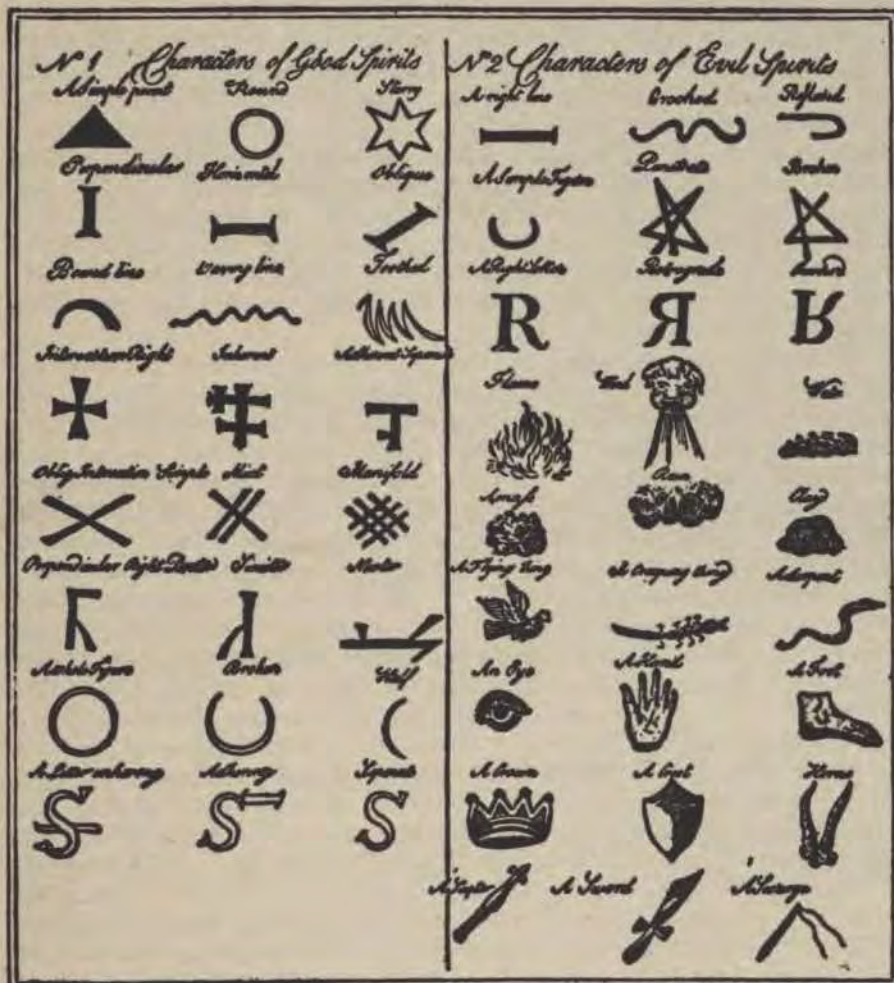 Nº 1 Characters of Good Spirits
A Simple point Round Starry
Perpendicular Horizontal Oblique
Bowed line Waving line Toothed
Intersection Right Inherent Adherent Separate
Obliq Intersection Simple Mixt Manifold
Perpendicular Right Dexter Sinister Neuter
A whole Figure Broken Half
A Letter inhering Adhering Separate
Nº 2 Characters of Evil Spirits
A right line Crooked Reflexed
A Simple Figure Penetrate Broken
A Right Letter Retrograde
R R R
Flame Wind Water
A mass Rain Clay
A Flying thing A Creeping thing A Serpent
An Eye A Hand A Foot
A Crown A Crest Horns
A Scepter A Sword A Scourge
S S S